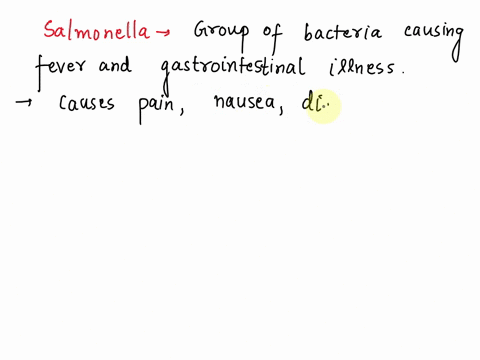 Salmonella → Group of bacteria causing
fever and gastrointestinal illness.
→ Causes pain, nausea, di